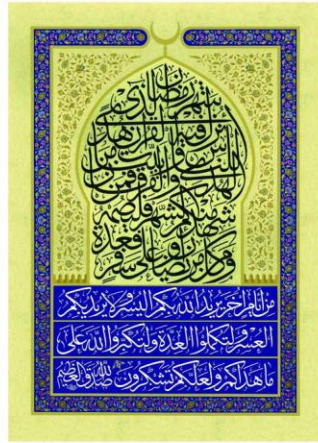 شهر رمضان الذي
أنزل فيه القرآن هدى
للناس وبينات من
الهدى والفرقان فمن
شهد منكم الشهر فليصمه
ومن كان مريضا أو على سفر فعدة
من أيام أخر يريد الله بكم اليسر ولا يريد بكم
العسر ولتكملوا العدة ولتكبروا الله على
ما هداكم ولعلكم تشكرون صدق الله العظيم